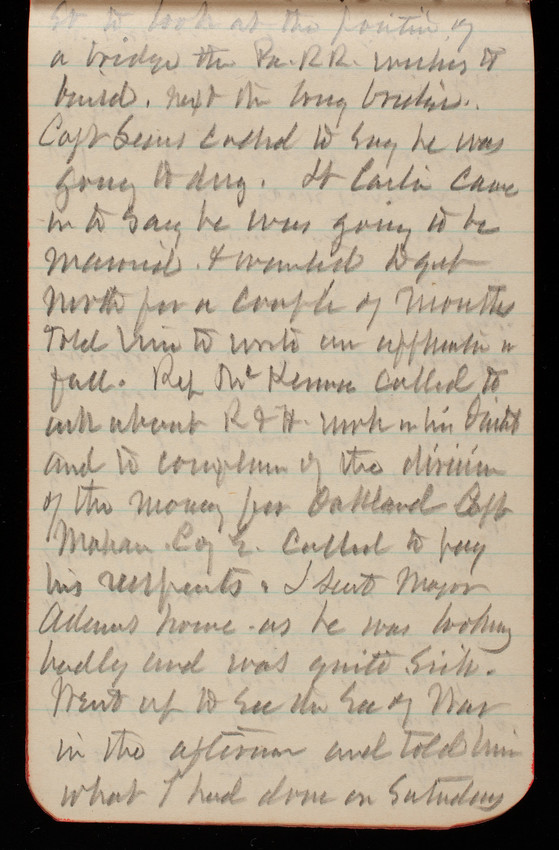 St to look at the position of
a bridge the Pa. R.R. wishes to
build. next the long bridge.
Capt Sears called to say he was
going to day. Lt Carlin came
in to say he was going to be
married. & wanted to get
north for a couple of months
Told him to write an application in
fall. Rep McKenna called to
ask about R & H. work in his District
and to complain of the division
of the money for Oakland Capt
Mahan. C of E. called to pay
his respects. I sent Major
Adams home. as he was looking
badly and was quite sick.
Went up to see the Sec of War
in the afternoon and told him
what I had done on Saturday